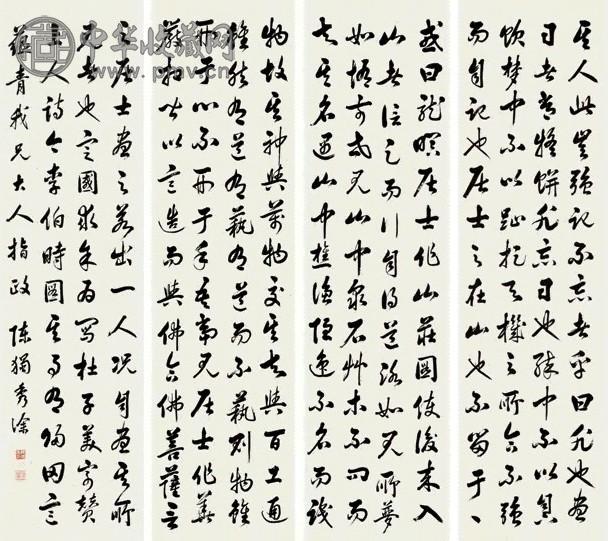 其人此豈強記不忘者乎曰非也畫
日者常疑餅非忘日也醉中不以鼻
飲夢中不以趾捉天機之所合不強
而自記也居士之在山也不留于一
或曰龍眠居士作山莊圖使後來入
山者信足而行自得道路如見所夢
如悟前世見山中泉石艸木不問而
知其名遇山中樵漁隱逸不名而識
物故其神與萬物交其知與百工通
雖然有道有藝有道而不藝則物雖
形于心不形于手吾嘗見居士作華
嚴相皆以意造而與佛合佛菩薩言
之居士畫之若出一人況自畫其所
見者也定國求余為寫杜子美寄贊
上人詩令李伯時圖其事有歸田意
蘊青我兄大人指政 陳獨秀塗
中华收藏网